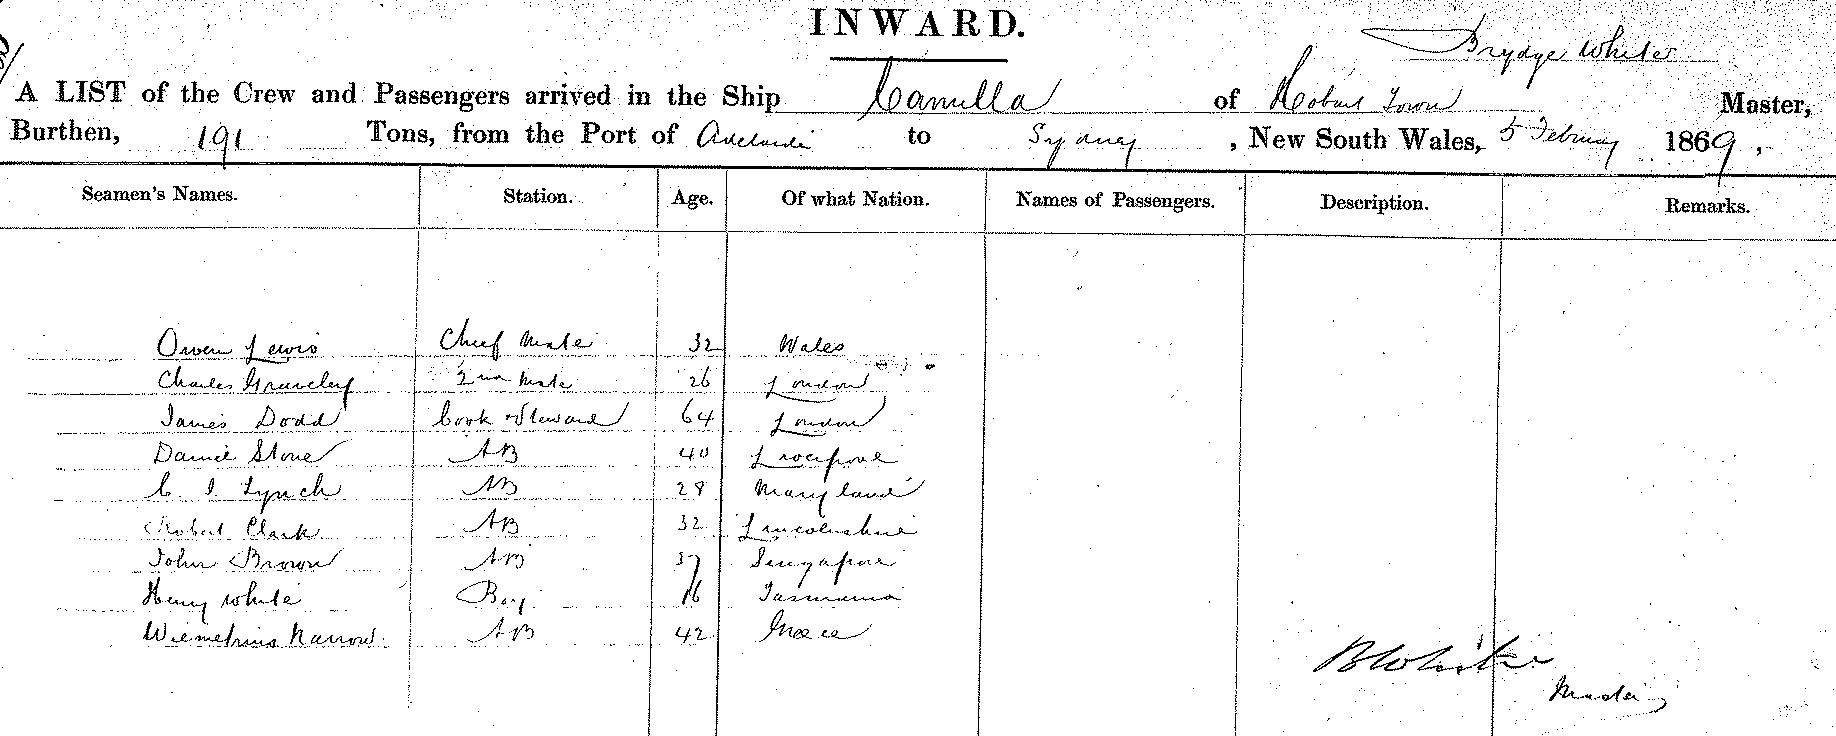 INWARD.
Brydge White
A LIST of the Crew and Passengers arrived in the Ship Camilla of Hobart Town Master,
Burthen, 191 Tons, from the Port of Adelaide to Sydney, New South Wales, 5 February 1869,
Seamen's Names. Station. Age. Of what Nation. Names of Passengers. Description. Remarks.
Owen Lewis Chief Mate 32 Wales
Charles Graveley 2nd Mate 26 London
James Dodd Cook & Steward 64 London
Daniel Stone AB 40 Liverpool
C I Lynch AB 28 Maryland
Robert Clark AB 32 Lincolnshire
John Brown AB 37 Singapore
Henry White Boy 16 Tasmania
Narrow AB 42 Greece
B White
Master